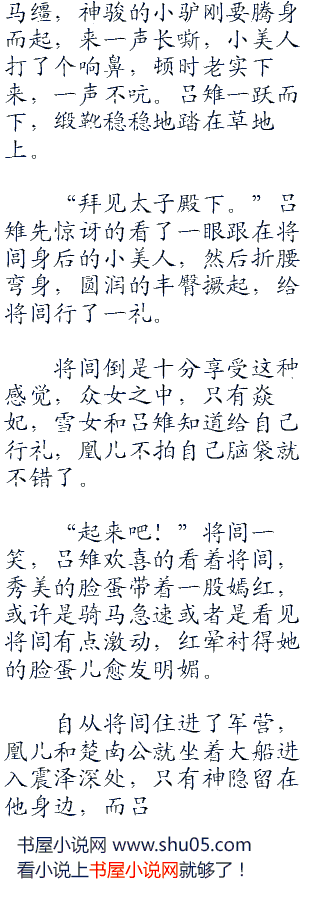 马缰，神骏的小驴刚要腾身
而起，来一声长嘶，小美人
打了个响鼻，顿时老实下
来，一声不吭。吕雉一跃而
下，缎靴稳稳地踏在草地
上。
“拜见太子殿下。”吕
雉先惊讶的看了一眼跟在将
闾身后的小美人，然后折腰
弯身，圆润的丰臀撅起，给
将闾行了一礼。
将闾倒是十分享受这种
感觉，众女之中，只有焱
妃，雪女和吕雉知道给自己
行礼，凰儿不拍自己脑袋就
不错了。
“起来吧！”将闾一
笑，吕雉欢喜的看着将闾，
秀美的脸蛋带着一股嫣红，
或许是骑马急速或者是看见
将闾有点激动，红晕衬得她
的脸蛋儿愈发明媚。
自从将闾住进了军营，
凰儿和楚南公就坐着大船进
入震泽深处，只有神隐留在
他身边，而吕
书屋小说网 www.shu05.com
看小说上书屋小说网就够了！